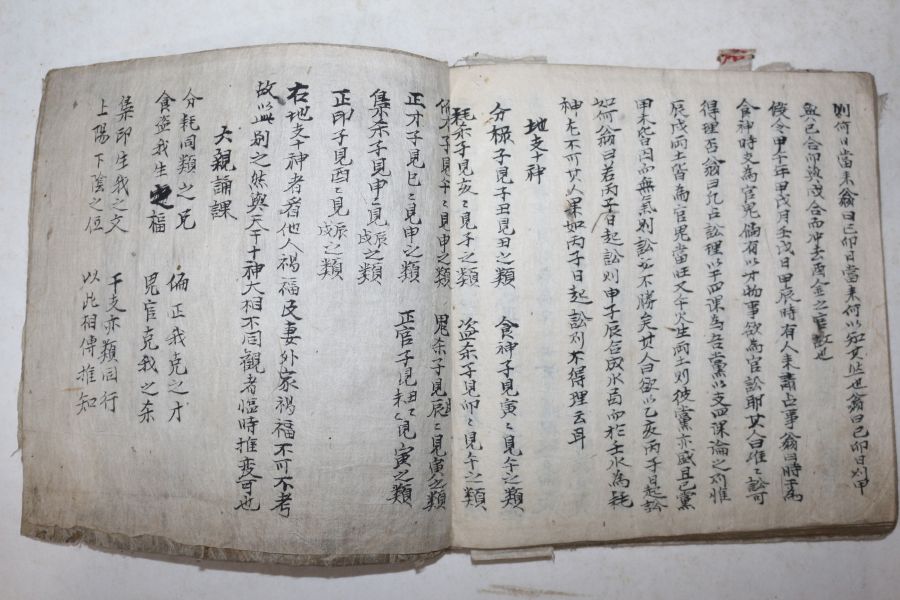 則何日當來翁曰己卯日當來何以知其然也翁曰己卯日則甲
與己合而卯與戌合而冲去酉金之官故也
假令甲子年甲戌月壬戌日甲辰時有人來肅占事翁曰時干為
食神時支為官鬼倘有以才物事欲為官訟耶其人曰唯唯訟可
得理否翁曰凡占訟理以干四課為吾黨以支四課論之則惟
辰戌兩土皆為官鬼當旺又午火生兩土則彼黨亦盛且己黨
甲木皆因而無氣則訟必不勝矣其人曰欲以乙亥丙子日起訟
如何翁曰若丙子日起訟則申子辰合成水局而於壬水為耗
神尤不可其人果如丙子日起訟則不得理云耳
地支十神
分梔子見子丑見丑之類 食神子見寅ミ見午之類
耗杀子見亥ミ見子之類 盗杀子見卯ミ見午之類
偏才子見午ミ見申之類 鬼杀子見辰ミ見寅之類
正才子見巳ミ見申之類 正官子見未丑ミ見寅之類
梟杀子見申ミ見辰戌之類
正印子見酉ミ見辰戌之類
右地支十神者看他人禍福及妻外家禍福不可不考
故以此別之然與天干十神大相不同觀者臨時推變可也
六親論課
分耗同類之兄 偏正我克之才
食盗我生之福 鬼官克我之杀
梟印生我之文 干支亦類同行
上陽下陰之位 以此相傳推知